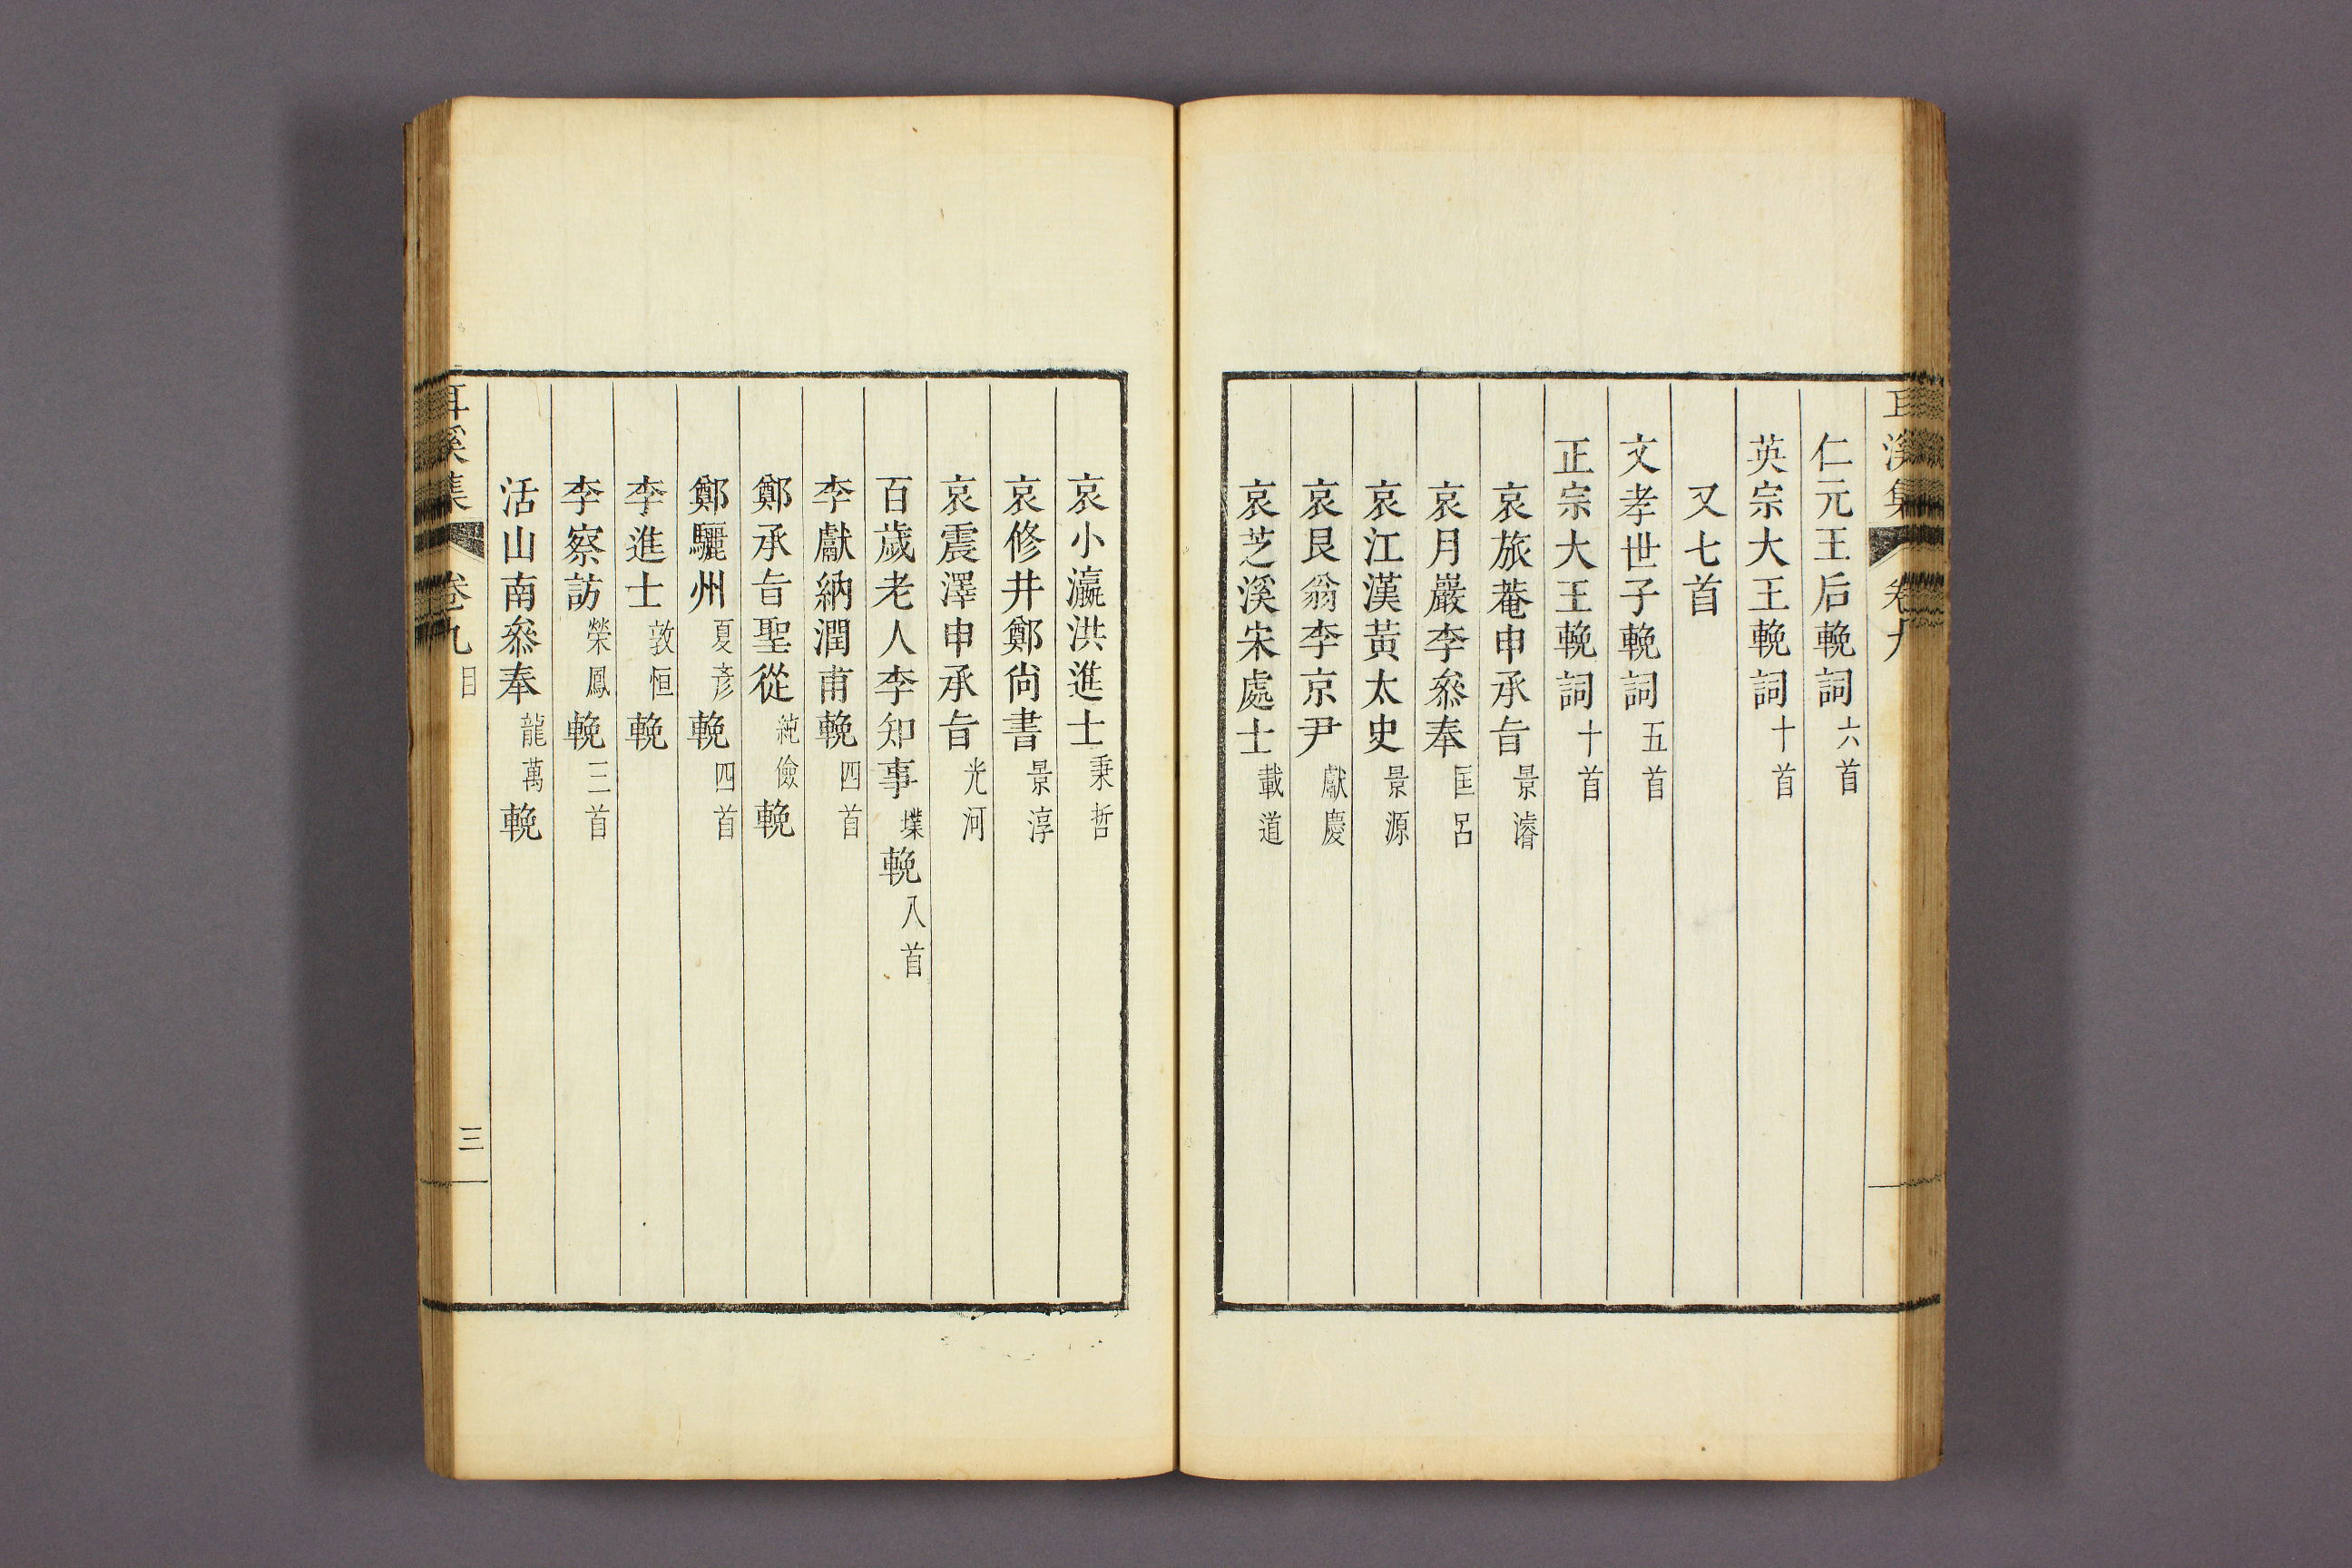 耳溪集 卷九
仁元王后輓詞六首
英宗大王輓詞十首
又七首
文孝世子輓詞五首
正宗大王輓詞十首
哀旅菴申承旨景濬
哀月巖李叅奉匡呂
哀江漢黃太史景源
哀艮翁李京尹獻慶
哀芝溪宋處士載道
哀小瀛洪進士秉哲
哀修井鄭尙書景淳
哀震澤申承旨光河
百歲老人李知事墣輓八首
李獻納潤甫輓四首
鄭承旨聖從純儉輓
鄭驪州夏彥輓四首
李進士敦恒輓
李察訪榮鳳輓三首
活山南叅奉龍萬輓
耳溪集 卷九 目 三